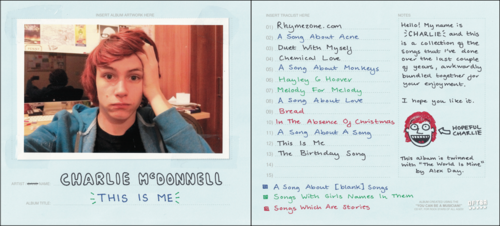 INSERT ALBUM ARTWORK HERE
ARTIST
CHARLIE McDONNELL
ALBUM TITLE
THIS IS ME
INSERT TRACKLIST HERE
Rhymezone.com
A Song About Acne
Duet With Myself
Chemical Love
A Song About Monkeys
Hayley G Hoover
Melody For Melody
A Song About Love
Bread
In The Absence Of Christmas
A Song About A Song
This Is Me
The Birthday Song
A Song About [blank] Songs
Songs With Girls Names In Them
Songs Which Are Stories
NOTES
Hello! My name is
CHARLIE and this
is a collection of the
songs that I've done
over the last couple
of years, awkwardly
bundled together for
your enjoyment.
I hope you like it.
HOPEFUL
CHARLIE
This album is twinned
with "The World Is Mine"
by Alex Day.